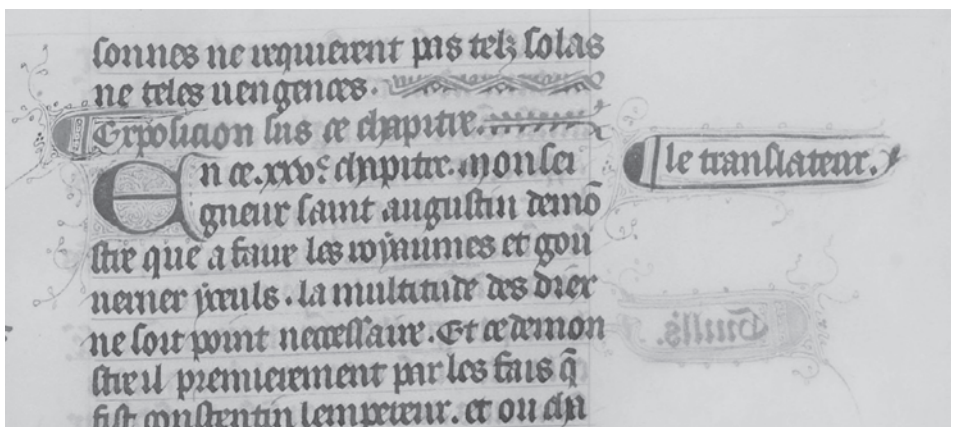 sonnes ne requierent pas telz solas
ne teles uengences.
Exposicion sus ce chapitre.
En ce .xxv.e chapitre. monsei
gneur saint augustin demõ
stre que a faire les royaumes et gou
uerner yceuls. la multitude des diex
ne soit point necessaire. Et ce demon
stre il premierement par les fais q̃
fist constentin lempereur. et ou cha
le translateur.